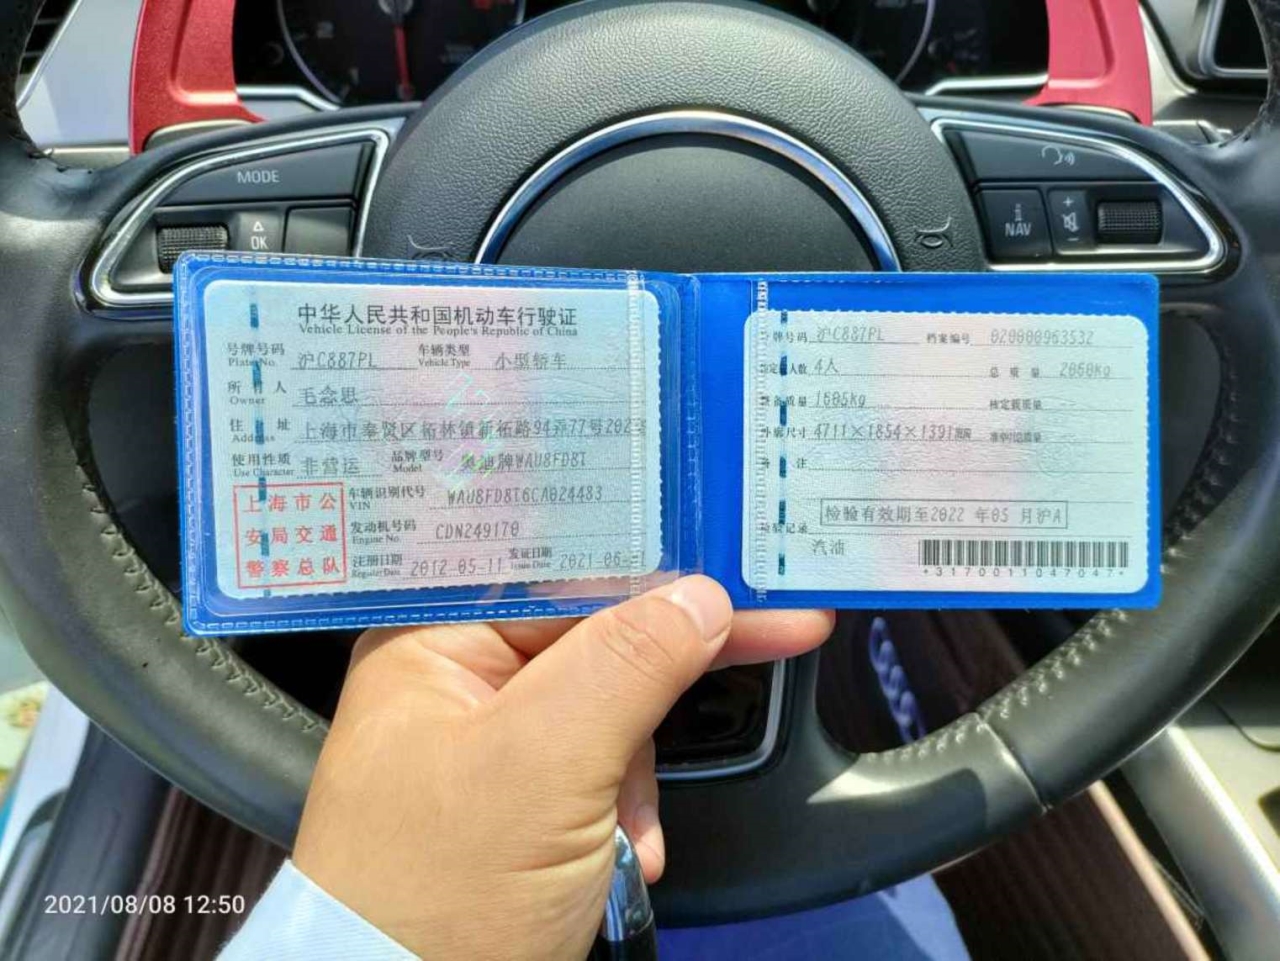 MODE
OK
NAV
中华人民共和国机动车行驶证
Vehicle License of the People's Republic of China
号牌号码 沪C887PL 车辆类型 小型轿车
Plate No. Vehicle Type
所有人 毛念思
Owner
住址 上海市奉贤区柘林镇新柘路94弄77号202
Address
使用性质 非营运 品牌型号 奥迪牌WAU8FD8T
Use Character Model
上海市公
安局交通
警察总队
车辆识别代号 WAU8FD8T6CA024483
VIN
发动机号码 CDN249170
Engine No.
注册日期 2012-05-11 发证日期 2021-06-
Register Date Issue Date
号牌号码 沪C887PL 档案编号 020000963532
核定人数 4人 总质量 2060kg
整备质量 1605kg 核定载质量
外廓尺寸 4711×1854×1391mm 准牵引总质量
备注
检验有效期至2022年05月沪A
检验记录
汽油
*3170011047047*
2021/08/08 12:50